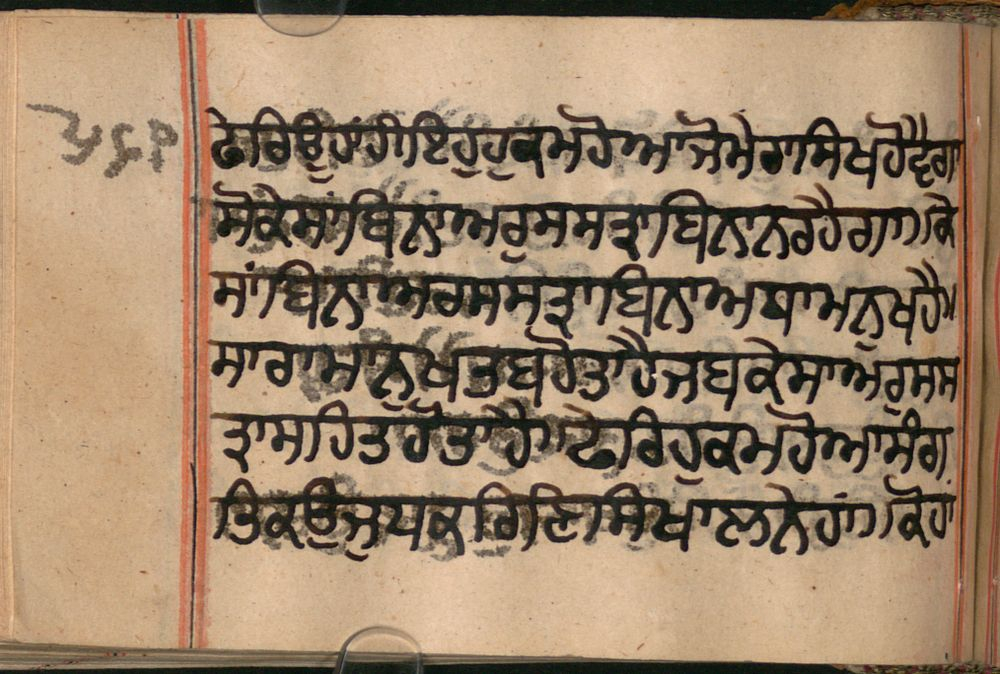 ਫੇਰਿਉਹਾਂਹੀਇਹੁਹੁਕਮਹੋਆਜੋਮੇਰਾਸਿਖਹੋਵੈਗਾ
ਸੋਕੇਸਾਂਬਿਨਾਂਅਰੁਸਸਤ੍ਰਾਬਿਨਾਨਰਹੈਗਾ॥ਕੇ
ਸਾਂਬਿਨਾਅਰਸਸਤ੍ਰਾਬਿਨਾਅਧਾਮਨੁਖਹੈ॥
ਸਾਰਾਮਾਨੁਖਤਬਹੋਤਾਹੈਜਬਕੇਸਾਅਰੁਸਸ
ਤ੍ਰਾਸਹਿਤਹੋਤਾਹੈ॥ਫੇਰਿਹੁਕਮਹੋਆਸੰਗ
ਤਿਕਉਜੁਧਕਰਿਣਿਸਿਖਾਲਨੇਹਾਂ॥ਕੋਹਾਂ